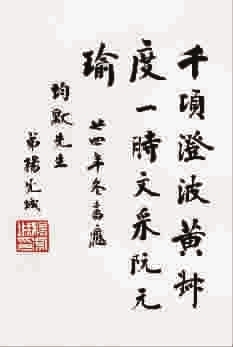 千頃澄波黃叔
度一時文采阮元
瑜
廿四年冬書應
均默先生
弟楊